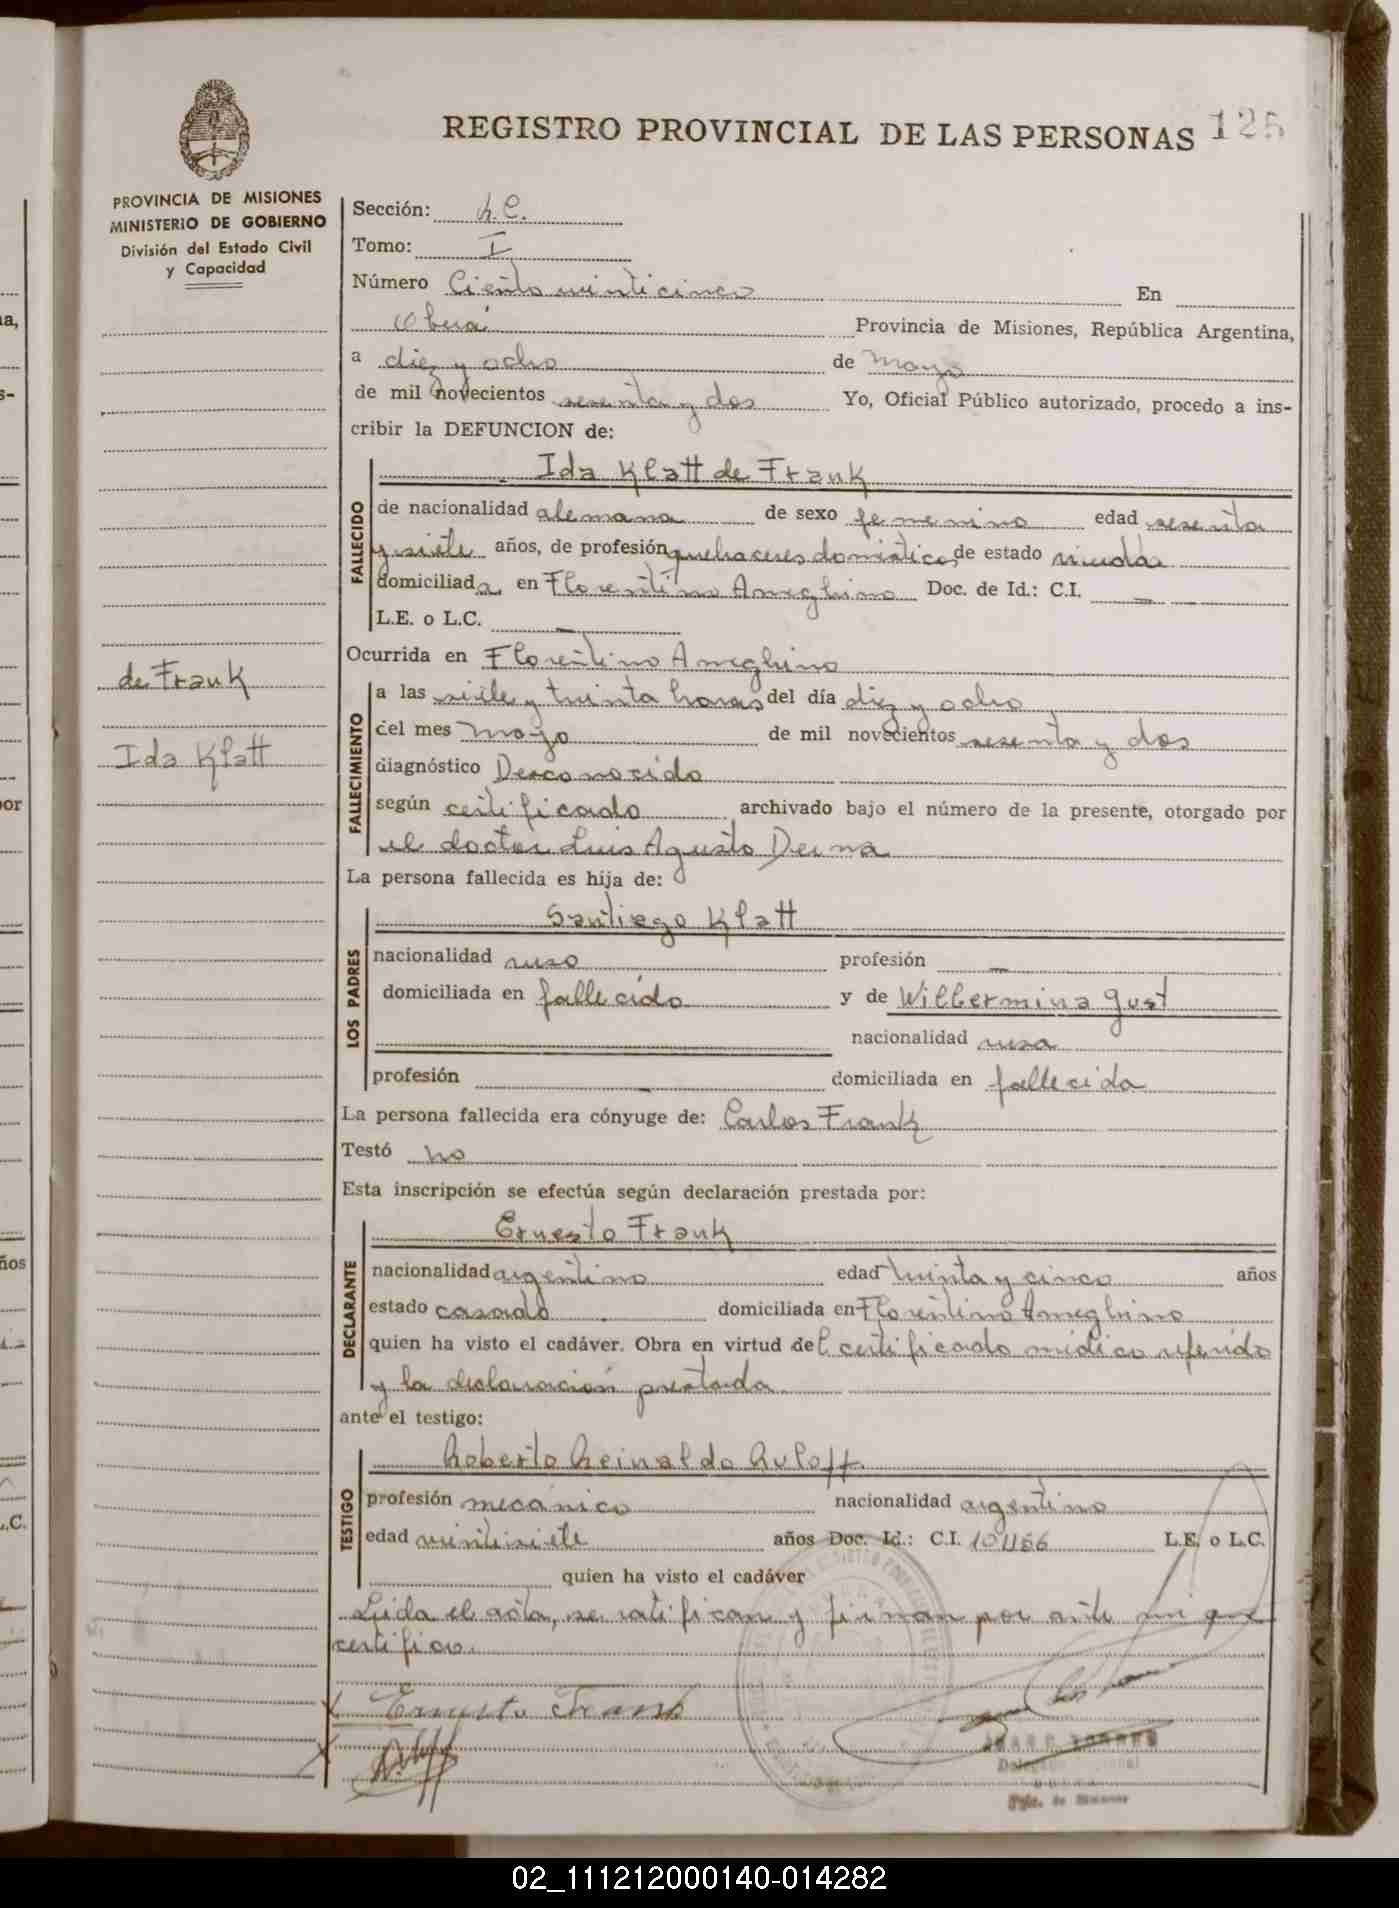 REGISTRO PROVINCIAL DE LAS PERSONAS 125
PROVINCIA DE MISIONES
MINISTERIO DE GOBIERNO
División del Estado Civil
y Capacidad
de Frank
Ida Klatt
Sección:
Tomo: I
Número Ciento veinticinco En
Oberá Provincia de Misiones, República Argentina,
a diez y ocho de Mayo
de mil novecientos sesenta y dos Yo, Oficial Público autorizado, procedo a ins-
cribir la DEFUNCION de:
Ida Klatt de Frank
FALLECIDO
de nacionalidad alemana de sexo femenino edad sesenta
y siete años, de profesión quehaceres domésticos de estado viuda
domiciliada en Florentino Ameghino Doc. de Id.: C.I. —
L.E. o L.C. —
Ocurrida en Florentino Ameghino
FALLECIMIENTO
a las siete y treinta horas del día diez y ocho
del mes Mayo de mil novecientos sesenta y dos
diagnóstico Desconocido
según certificado archivado bajo el número de la presente, otorgado por
el doctor Luis Agusto
La persona fallecida es hija de:
Santiago Klatt
LOS PADRES
nacionalidad ruso profesión —
domiciliada en fallecido y de Willermina Gust
nacionalidad rusa
profesión — domiciliada en fallecida
La persona fallecida era cónyuge de: Carlos Frank
Testó no
Esta inscripción se efectúa según declaración prestada por:
Ernesto Frank
DECLARANTE
nacionalidad argentino edad treinta y cinco años
estado casado domiciliada en Florentino Ameghino
quien ha visto el cadáver. Obra en virtud del certificado médico referido
y la declaración prestada.
ante el testigo:
Roberto Reinaldo Ruloff
TESTIGO
profesión mecánico nacionalidad argentino
edad veintisiete años Doc. Id.: C.I. L.E. o L.C.
quien ha visto el cadáver
Leida el acta, se ratifican y firman por ante mi que
certifico.
Ernesto Frank
Pcia. de Misiones
02_111212000140-014282